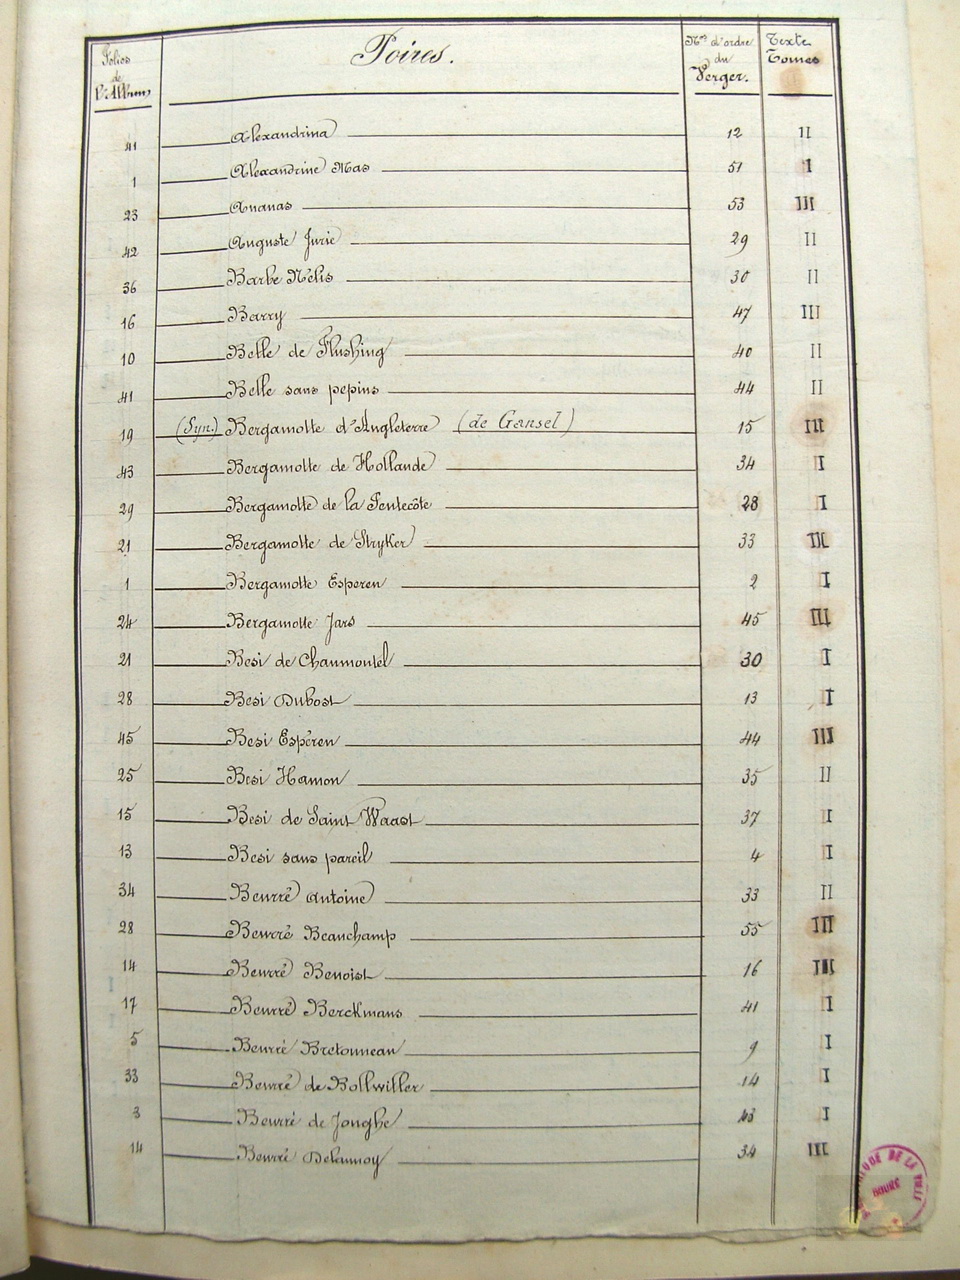 Folios de l'Album
Poires.
Nos d'ordre du Verger.
Texte Tomes
41 Alexandrina 12 II
1 Alexandrine Mas 51 I
23 Ananas 53 III
42 Auguste Jurie 29 II
36 Barbe Nélis 30 II
16 Barry 47 III
10 Belle de Flushing 40 II
41 Belle sans pepins 44 II
19 (Syn.) Bergamotte d'Angleterre (de Gansel) 15 III
43 Bergamotte de Hollande 34 I
29 Bergamotte de la Pentecôte 28 I
21 Bergamotte de Stryker 33 III
1 Bergamotte Esperen 2 I
24 Bergamotte Jars 45 III
21 Besi de Chaumontel 30 I
28 Besi Dubost 13 I
45 Besi Espéren 44 III
25 Besi Hamon 35 II
15 Besi de Saint Waast 37 I
13 Besi sans pareil 4 I
34 Beurré Antoine 33 II
28 Beurré Beauchamp 55 III
14 Beurré Benoist 16 III
17 Beurré Berckmans 41 I
5 Beurré Bretonneau 9 I
33 Beurré de Bollwiller 14 I
3 Beurré de Jonghe 43 I
14 Beurré Delannoy 34 III
DE LA